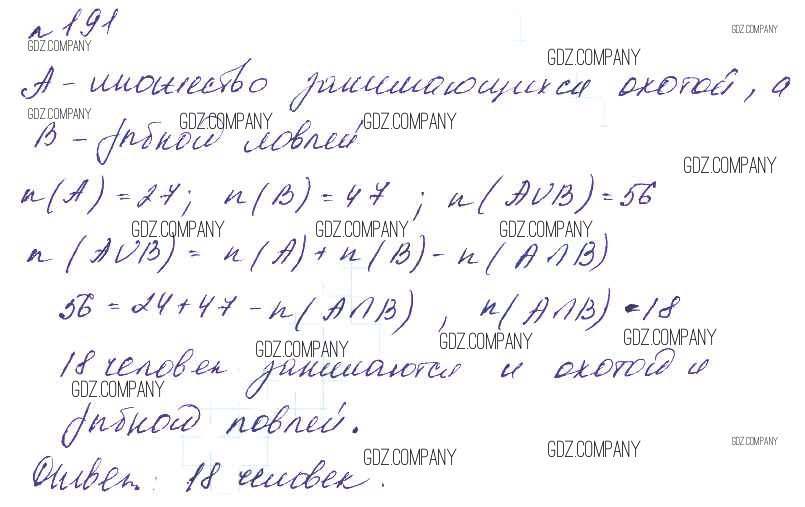 № 191
GDZ.COMPANY
GDZ.COMPANY
GDZ.COMPANY
А - множество занимающихся охотой, а
GDZ.COMPANY
GDZ.COMPANY
GDZ.COMPANY
В - рыбной ловлей
GDZ.COMPANY
n(A) = 27; n(B) = 47 ; n(A∪B) = 56
GDZ.COMPANY
GDZ.COMPANY
GDZ.COMPANY
n(A∪B) = n(A) + n(B) - n(A∩B)
56 = 24 + 47 - n(A∩B) , n(A∩B) = 18
GDZ.COMPANY
GDZ.COMPANY
GDZ.COMPANY
18 человек занимаются и охотой и
GDZ.COMPANY
рыбной ловлей.
GDZ.COMPANY
GDZ.COMPANY
GDZ.COMPANY
Ответ: 18 человек.